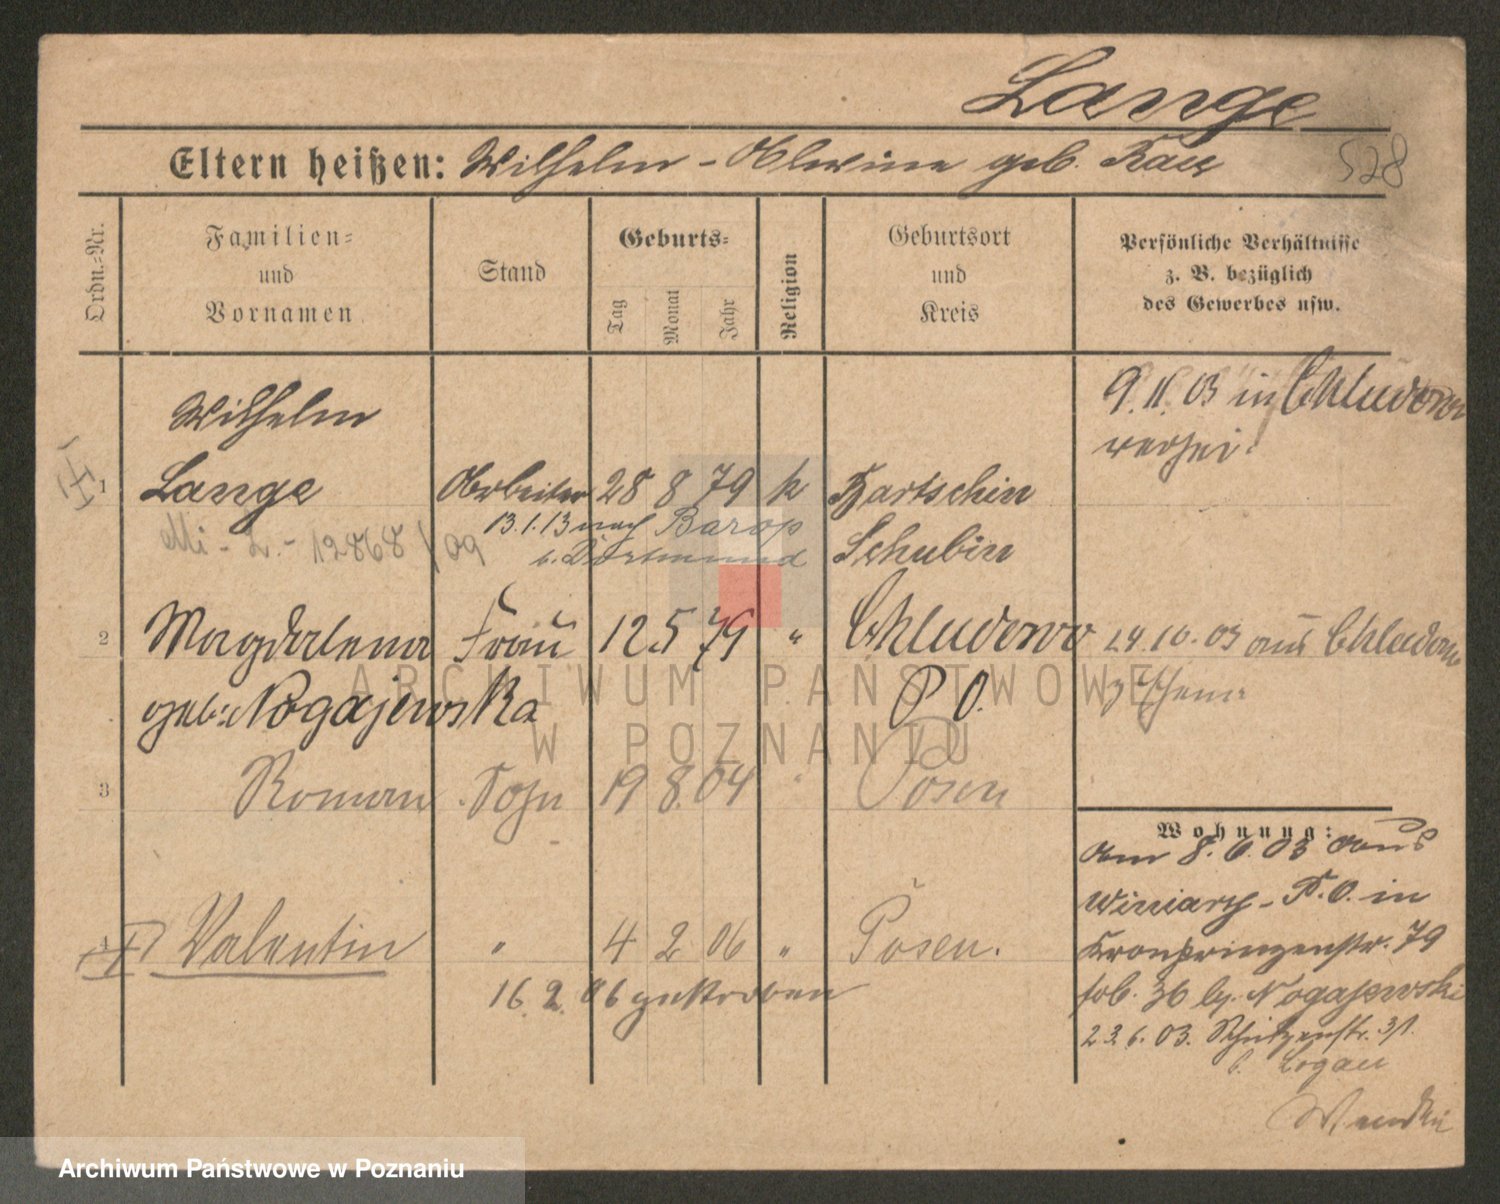 Lange
528
Eltern heißen: Wilhelm - Albwine geb. Rau
Ordn.-Nr.
Familien- und Vornamen
Stand
Geburts-
Tag Monat Jahr
Religion
Geburtsort und Kreis
Persönliche Verhältnisse z. B. bezüglich des Gewerbes usw.
Wilhelm
9. 11. 03 in Chludowo
1 Lange Arbeiter 28 8 79 k Bartschin
Mi - L. - 12868/09 13.1.13 nach Barop
b. Dortmund Schubin
2 Magdalena Frau 12 5 79 " Chludowo 24.10.03 aus Chludowo
geb. Nogajewska P O.
3 Roman Sohn 19 8. 04 " Posen
Wohnung:
am 8. 6. 03 aus
Winiary - P. O. in
4 Valentin " 4 2 06 " Posen. Kronprinzenstr. 79
16. 2. 06 gestorben
b. Nogajewski
23. 6. 03. Schützenstr. 31.
b. Logau
ARCHIWUM PAŃSTWOWE
W POZNANIU
Archiwum Państwowe w Poznaniu